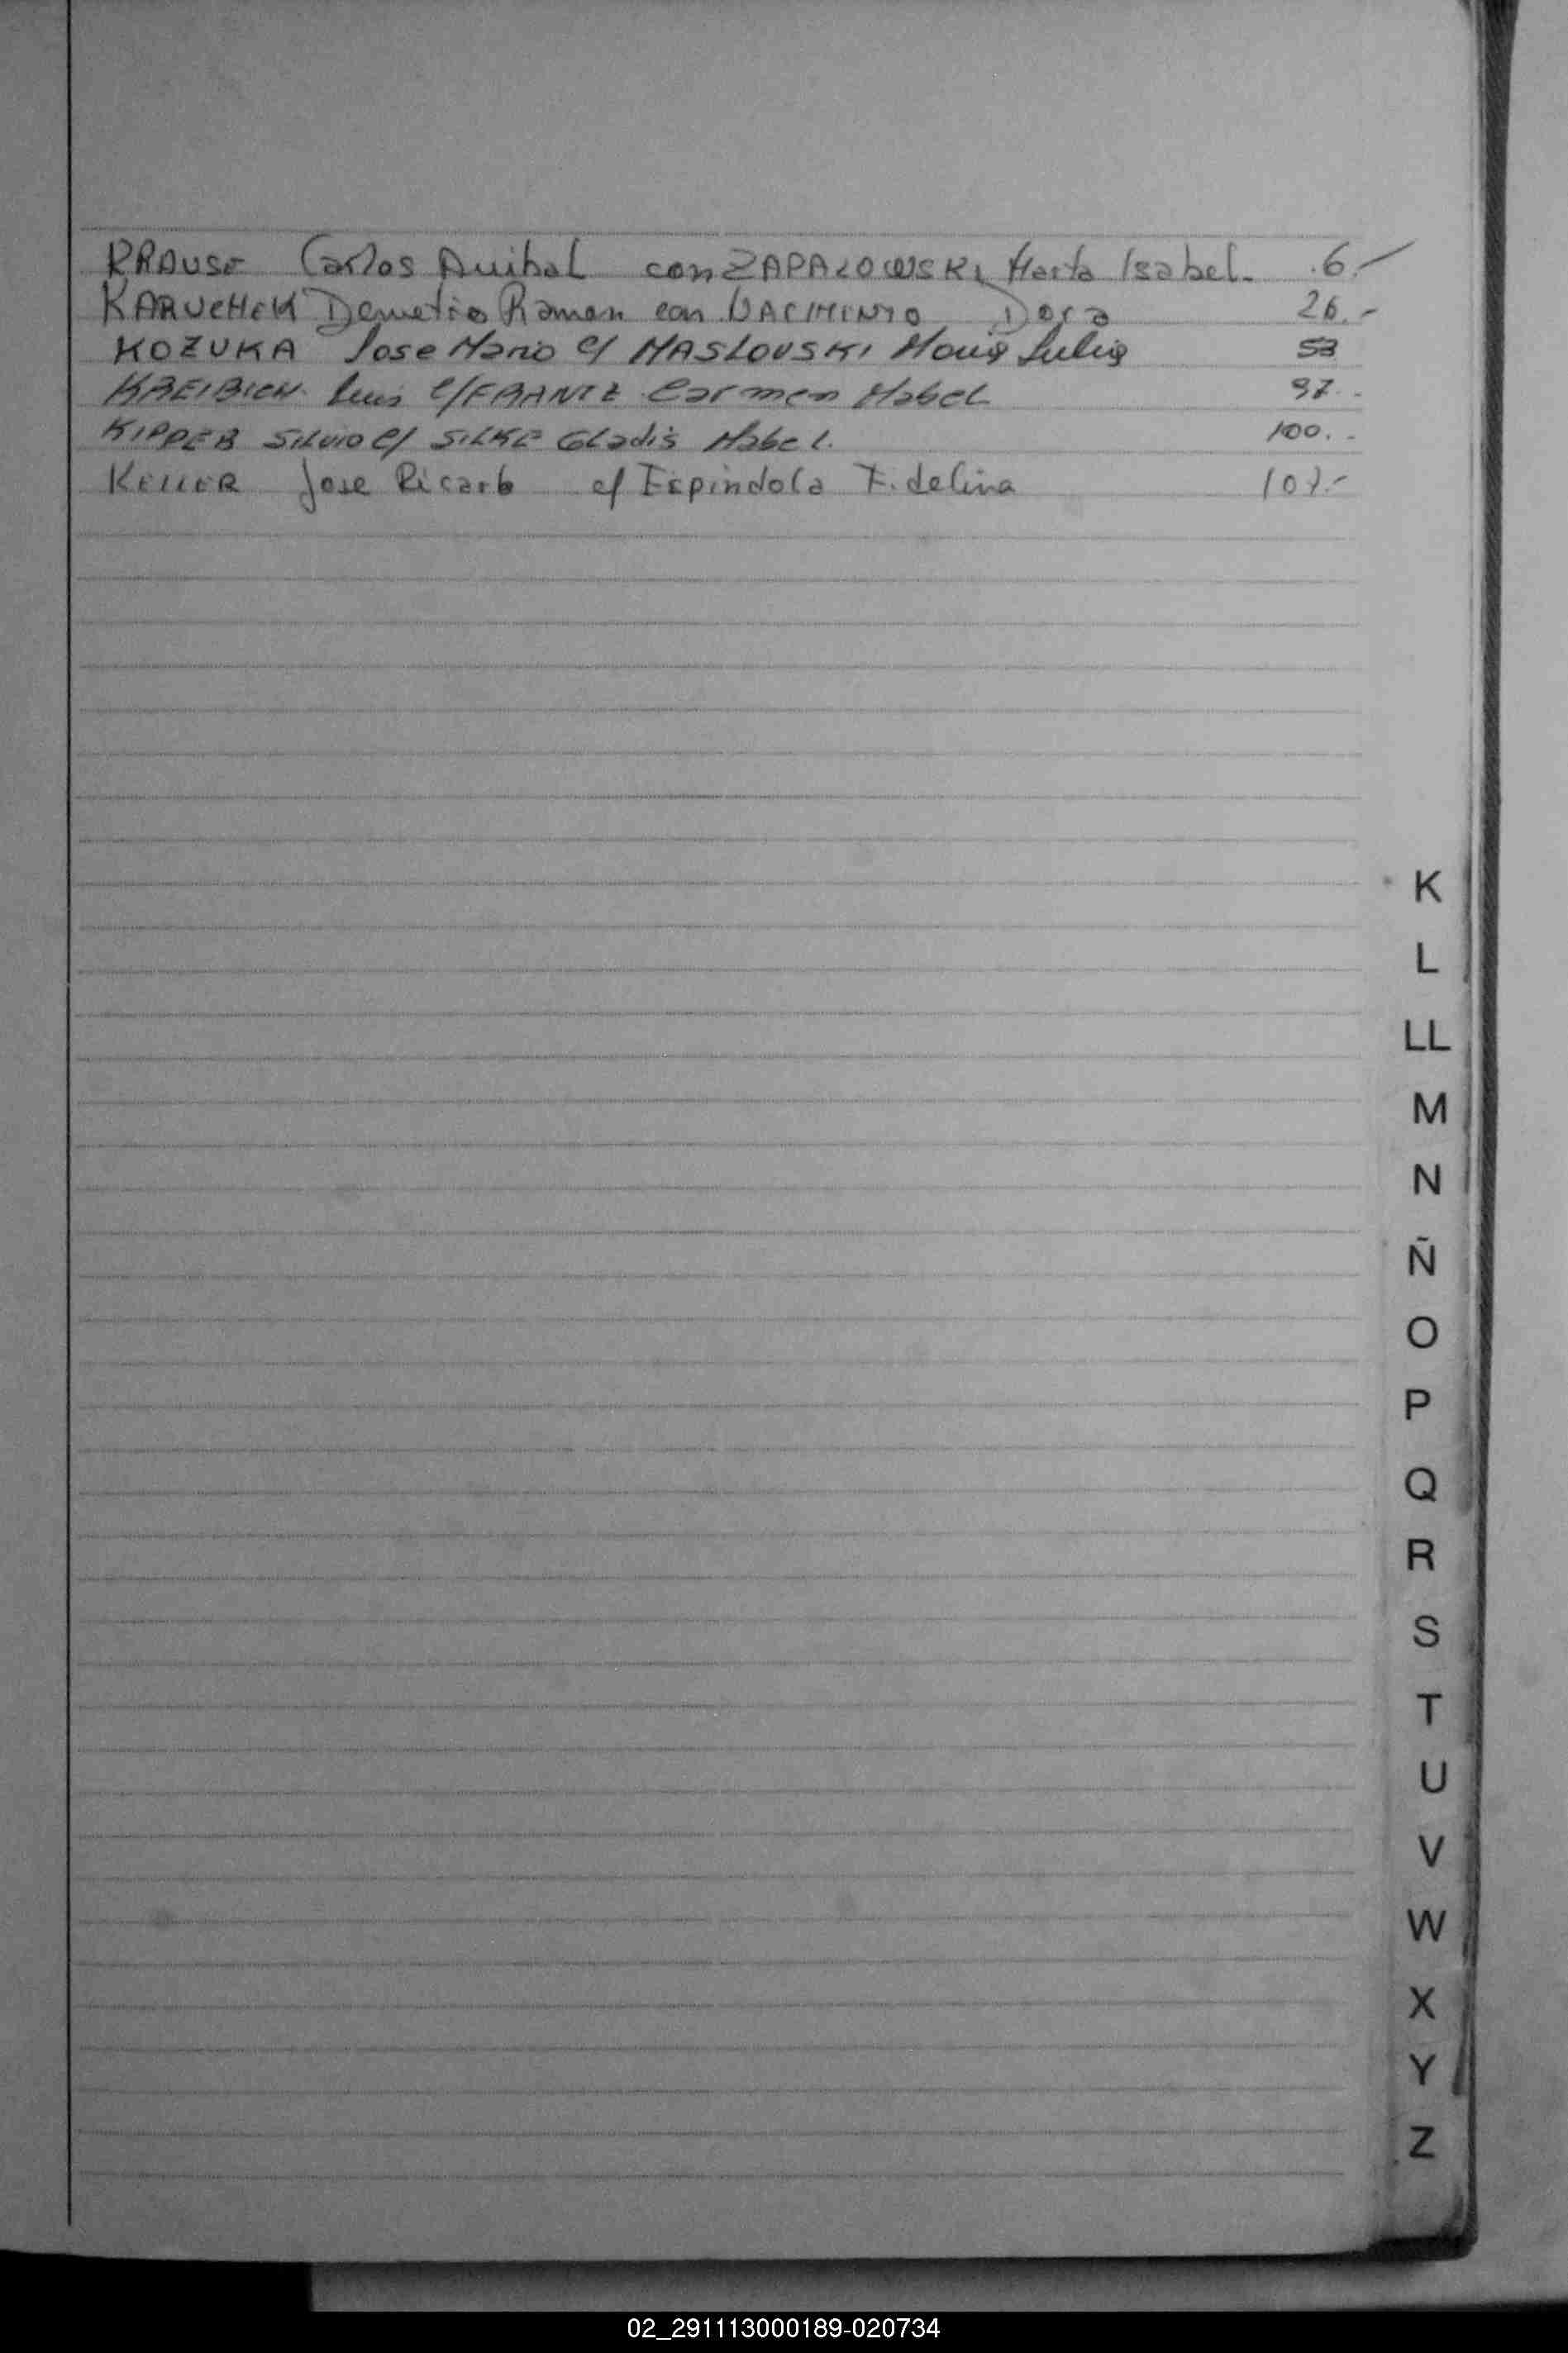 KRAUSE Carlos Anibal con ZAPALOWSKI Marta Isabel. 6.-
Demetrio Ramon con Dora 26.-
KOZUKA Jose Mario c/ MASLOUSKI Maria Julia 53
KREIBICH Luis c/ FRANTZ Carmen Mabel 97.-
KIPPER Silvio c/ SILKE Gladis Mabel. 100.-
KELLER Jose Ricardo c/ Espindola Fidelina 107.-
K
L
LL
M
N
Ñ
O
P
Q
R
S
T
U
V
W
X
Y
Z
02_291113000189-020734